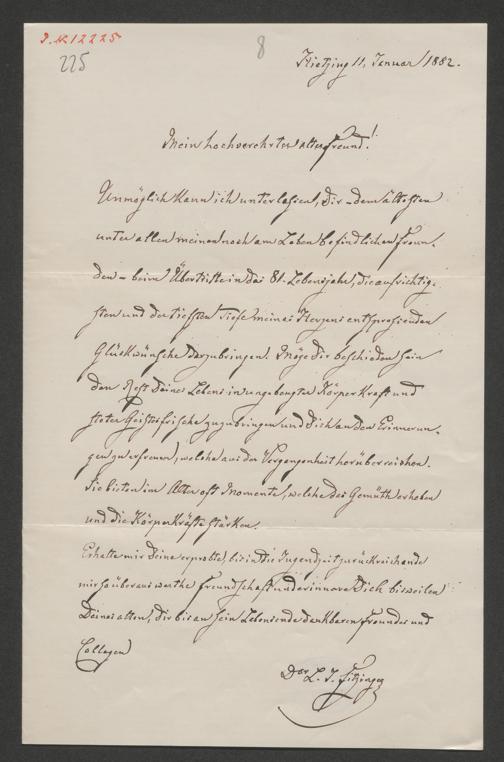 I.N. 12225
225
8
Hietzing 11. Januar 1882.
Mein hochverehrter alter Freund!
Unmöglich kann ich unterlassen, Dir – dem ältesten
unter allen meinen noch am Leben befindlichen Freun-
den – beim Übertritte in das 81. Lebensjahr, die aufrichtig-
sten und der tiefsten Tiefe meines Herzens entsprossenden
Glückwünsche darzubringen. Möge Dir beschieden sein
den Rest Deines Lebens in ungebeugter Körperkraft und
steter Geistesfrische zuzubringen und Dich an den Erinnerun-
gen zu erfreuen, welche aus der Vergangenheit herüberreichen.
Sie bieten im Alter oft Momente, welche das Gemüth erheben
und die Körperkräfte stärken.
Erhalte mir Deine erprobte, bis in die Jugendzeit zurückreichende
mir so überaus werthe Freundschaft und erinnere Dich bisweilen
Deines alten, Dir bis an sein Lebensende dankbaren Freundes und
Collegen
Dor L. J. Fitzinger